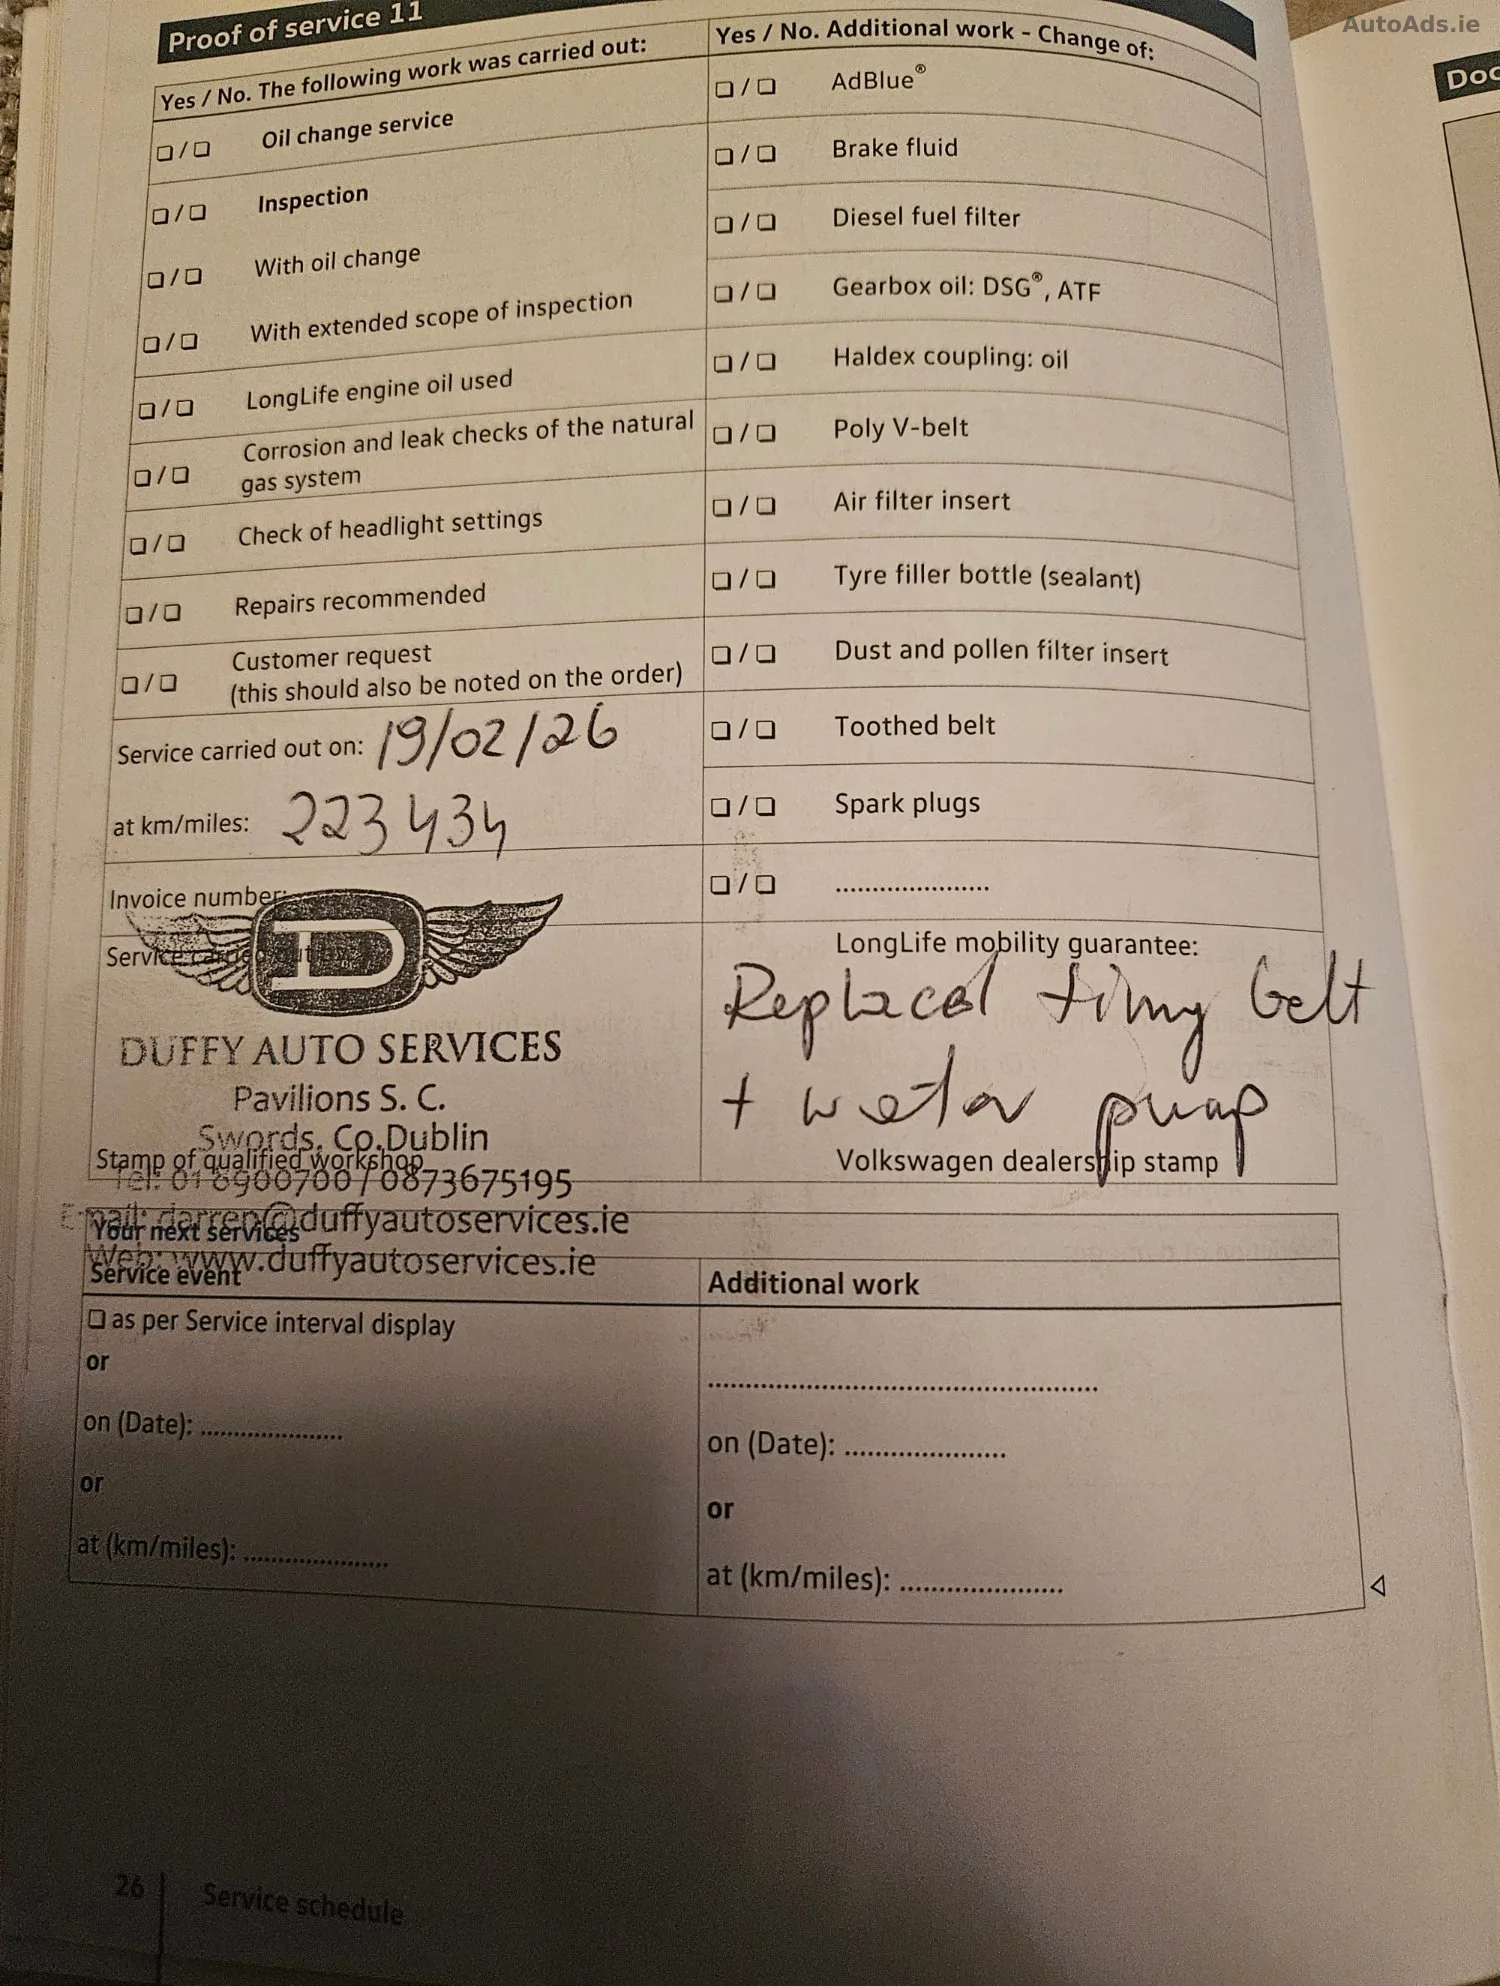 AutoAds.ie
Proof of service 11
Doc
Yes / No. The following work was carried out:
❑ / ❑ Oil change service
❑ / ❑ Inspection
❑ / ❑ With oil change
❑ / ❑ With extended scope of inspection
❑ / ❑ LongLife engine oil used
❑ / ❑ Corrosion and leak checks of the natural
gas system
❑ / ❑ Check of headlight settings
❑ / ❑ Repairs recommended
❑ / ❑ Customer request
(this should also be noted on the order)
Service carried out on: 19/02/26
at km/miles: 223434
Invoice number:
Service carried out by:
D
DUFFY AUTO SERVICES
Pavilions S. C.
Swords, Co.Dublin
Stamp of qualified workshop
Tel: 01 8900700 / 0873675195
Email: darren@duffyautoservices.ie
Web: www.duffyautoservices.ie
Yes / No. Additional work - Change of:
❑ / ❑ AdBlue®
❑ / ❑ Brake fluid
❑ / ❑ Diesel fuel filter
❑ / ❑ Gearbox oil: DSG®, ATF
❑ / ❑ Haldex coupling: oil
❑ / ❑ Poly V-belt
❑ / ❑ Air filter insert
❑ / ❑ Tyre filler bottle (sealant)
❑ / ❑ Dust and pollen filter insert
❑ / ❑ Toothed belt
❑ / ❑ Spark plugs
❑ / ❑ .....................
LongLife mobility guarantee:
Replaced timing belt
+ water pump
Volkswagen dealership stamp
Your next services
Service event
❑ as per Service interval display
or
on (Date): .....................
or
at (km/miles): .....................
Additional work
.....................................................
on (Date): ......................
or
at (km/miles): ......................
26 Service schedule